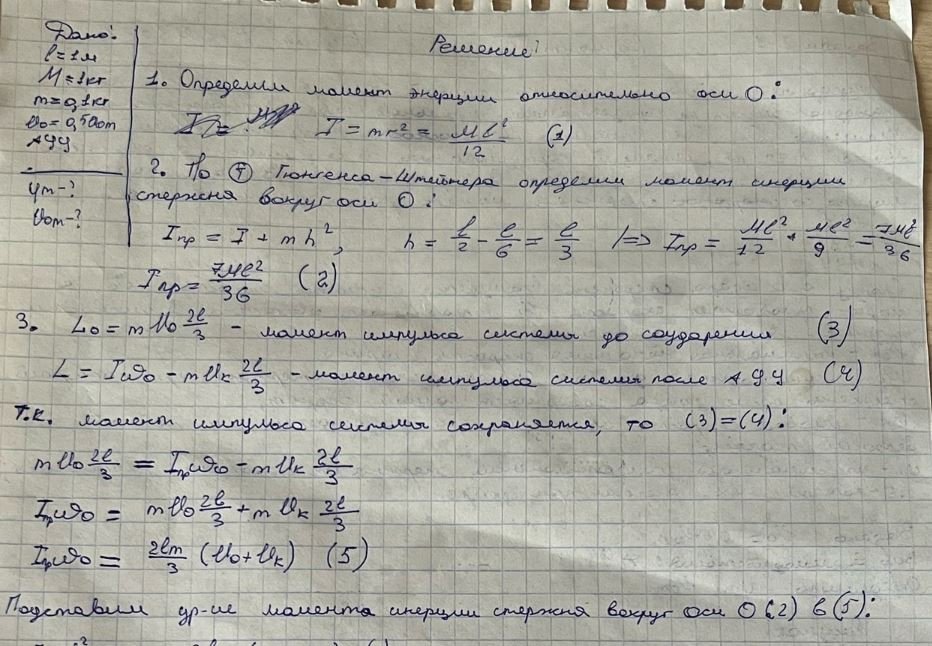 Дано:
l = 1м
M = 1кг
m = 0,1кг
АУУ
φm - ?
Решение:
1. Определим момент энерции относительно оси O:
I = mr² = Ml²/12 (1)
2. По Т Гюнгенса-Штейнера определим момент инерции
стержня вокруг оси O:
Iпр = I + mh², h = l/2 - l/6 = l/3 |=> Iпр = Ml²/12 + Ml²/9 = 7Ml²/36
Iпр = 7Ml²/36 (2)
3. L₀ = mU₀ 2l/3 - момент импульса системы до соударения (3)
L = Iω₀ - mUк 2l/3 - момент импульса системы после А.У.У (4)
Т.к. момент импульса системы сохраняется, то (3)=(4):
mU₀ 2l/3 = Iпрω₀ - mUк 2l/3
Iпрω₀ = mU₀ 2l/3 + mUк 2l/3
Iпрω₀ = 2lm/3 (U₀ + Uк) (5)
Подставим ур-ие момента инерции стержня вокруг оси O (2) в (5):